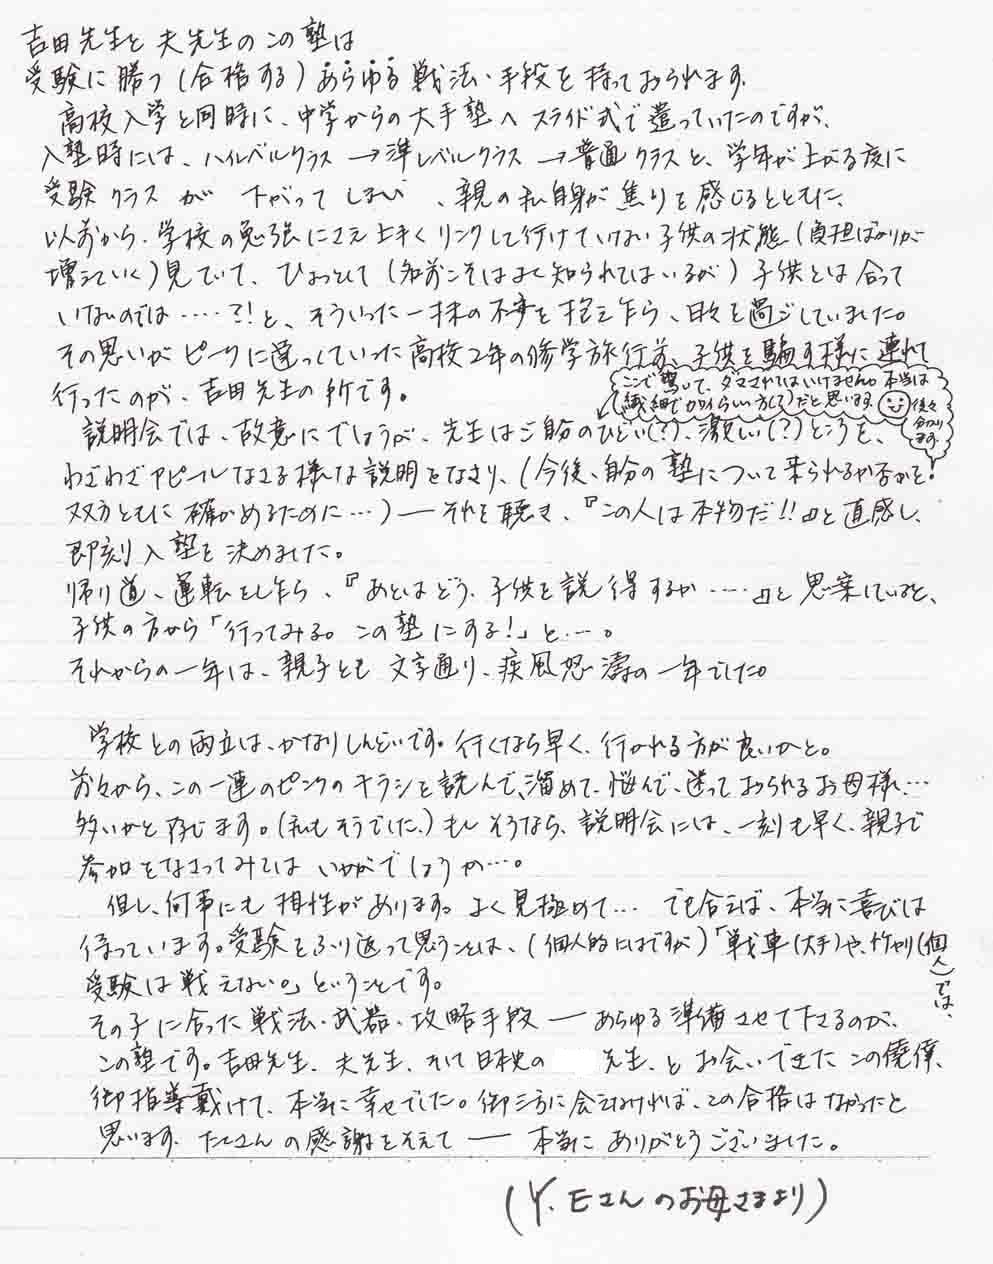 吉田先生と夫先生のこの塾は
受験に勝つ(合格する)あらゆる戦法・手段を持っておられます。
高校入学と同時に、中学からの大手塾へスライド式で通っていたのですが、
入塾時には、ハイレベルクラス→準レベルクラス→普通クラスと、学年が上がる度に
受験クラスが下がってしまい、親の私自身が焦りを感じるとともに、
以前から、学校の勉強にさえ上手くリンクして行けていない子供の状態(負担ばかりが
増えていく)見ていて、ひょっとして(名前こそはよく知られてはいるが)子供とは合って
いないのでは‥‥‥?!と、そういった一抹の不安を抱え乍ら、日々を過ごしていました。
その思いがピークに達っしていった高校2年の修学旅行前、子供を騙す様に連れて
行ったのが、吉田先生の所です。
ここで驚いて、ダマされてはいけません。本当は
繊細でカワイらしい方(して)だと思います。後々
分かります。
説明会では、故意にでしょうが、先生はご自分のひどい(?)、激しい(?)ところを、
わざわざアピールなさる様な説明をなさり、(今後、自分の塾について来られるか否かを!
双方ともに確かめるために…)― それを聴き、『この人は本物だ!!』と直感し、
即刻入塾を決めました。
帰り道、運転をし乍ら、『あとはどう、子供を説得するか‥‥』と思案していると、
子供の方から「行ってみる。この塾にする!」と…。
それからの一年は、親子とも文字通り、疾風怒濤の一年でした。
学校との両立は、かなりしんどいです。行くなら早く、行かれる方が良いかと。
前々から、この一連のピンクのチラシを読んで、溜めて、悩んで、迷っておられるお母様…
多いかと存じます。(私もそうでした。)もしそうなら、説明会には、一刻も早く、親子で
参加をなさってみてはいかがでしょうか…。
但し、何事にも相性があります。よく見極めて… でも合えば、本当に喜びは
待っています。受験をふり返って思うことは、(個人的にはですが)「戦車(大手)や、竹やり(個人)では、
受験は戦えない。」ということです。
その子に合った戦法・武器・攻略手段 ― あらゆる準備させて下さるのが、
この塾です。吉田先生、夫先生、そして日本史の 先生、とお会いできたこの僥倖、
御指導戴けて、本当に幸せでした。御三方に会えなければ、この合格はなかったと
思います。たくさんの感謝をそえて ― 本当にありがとうございました。
(Y.Eさんのお母さまより)